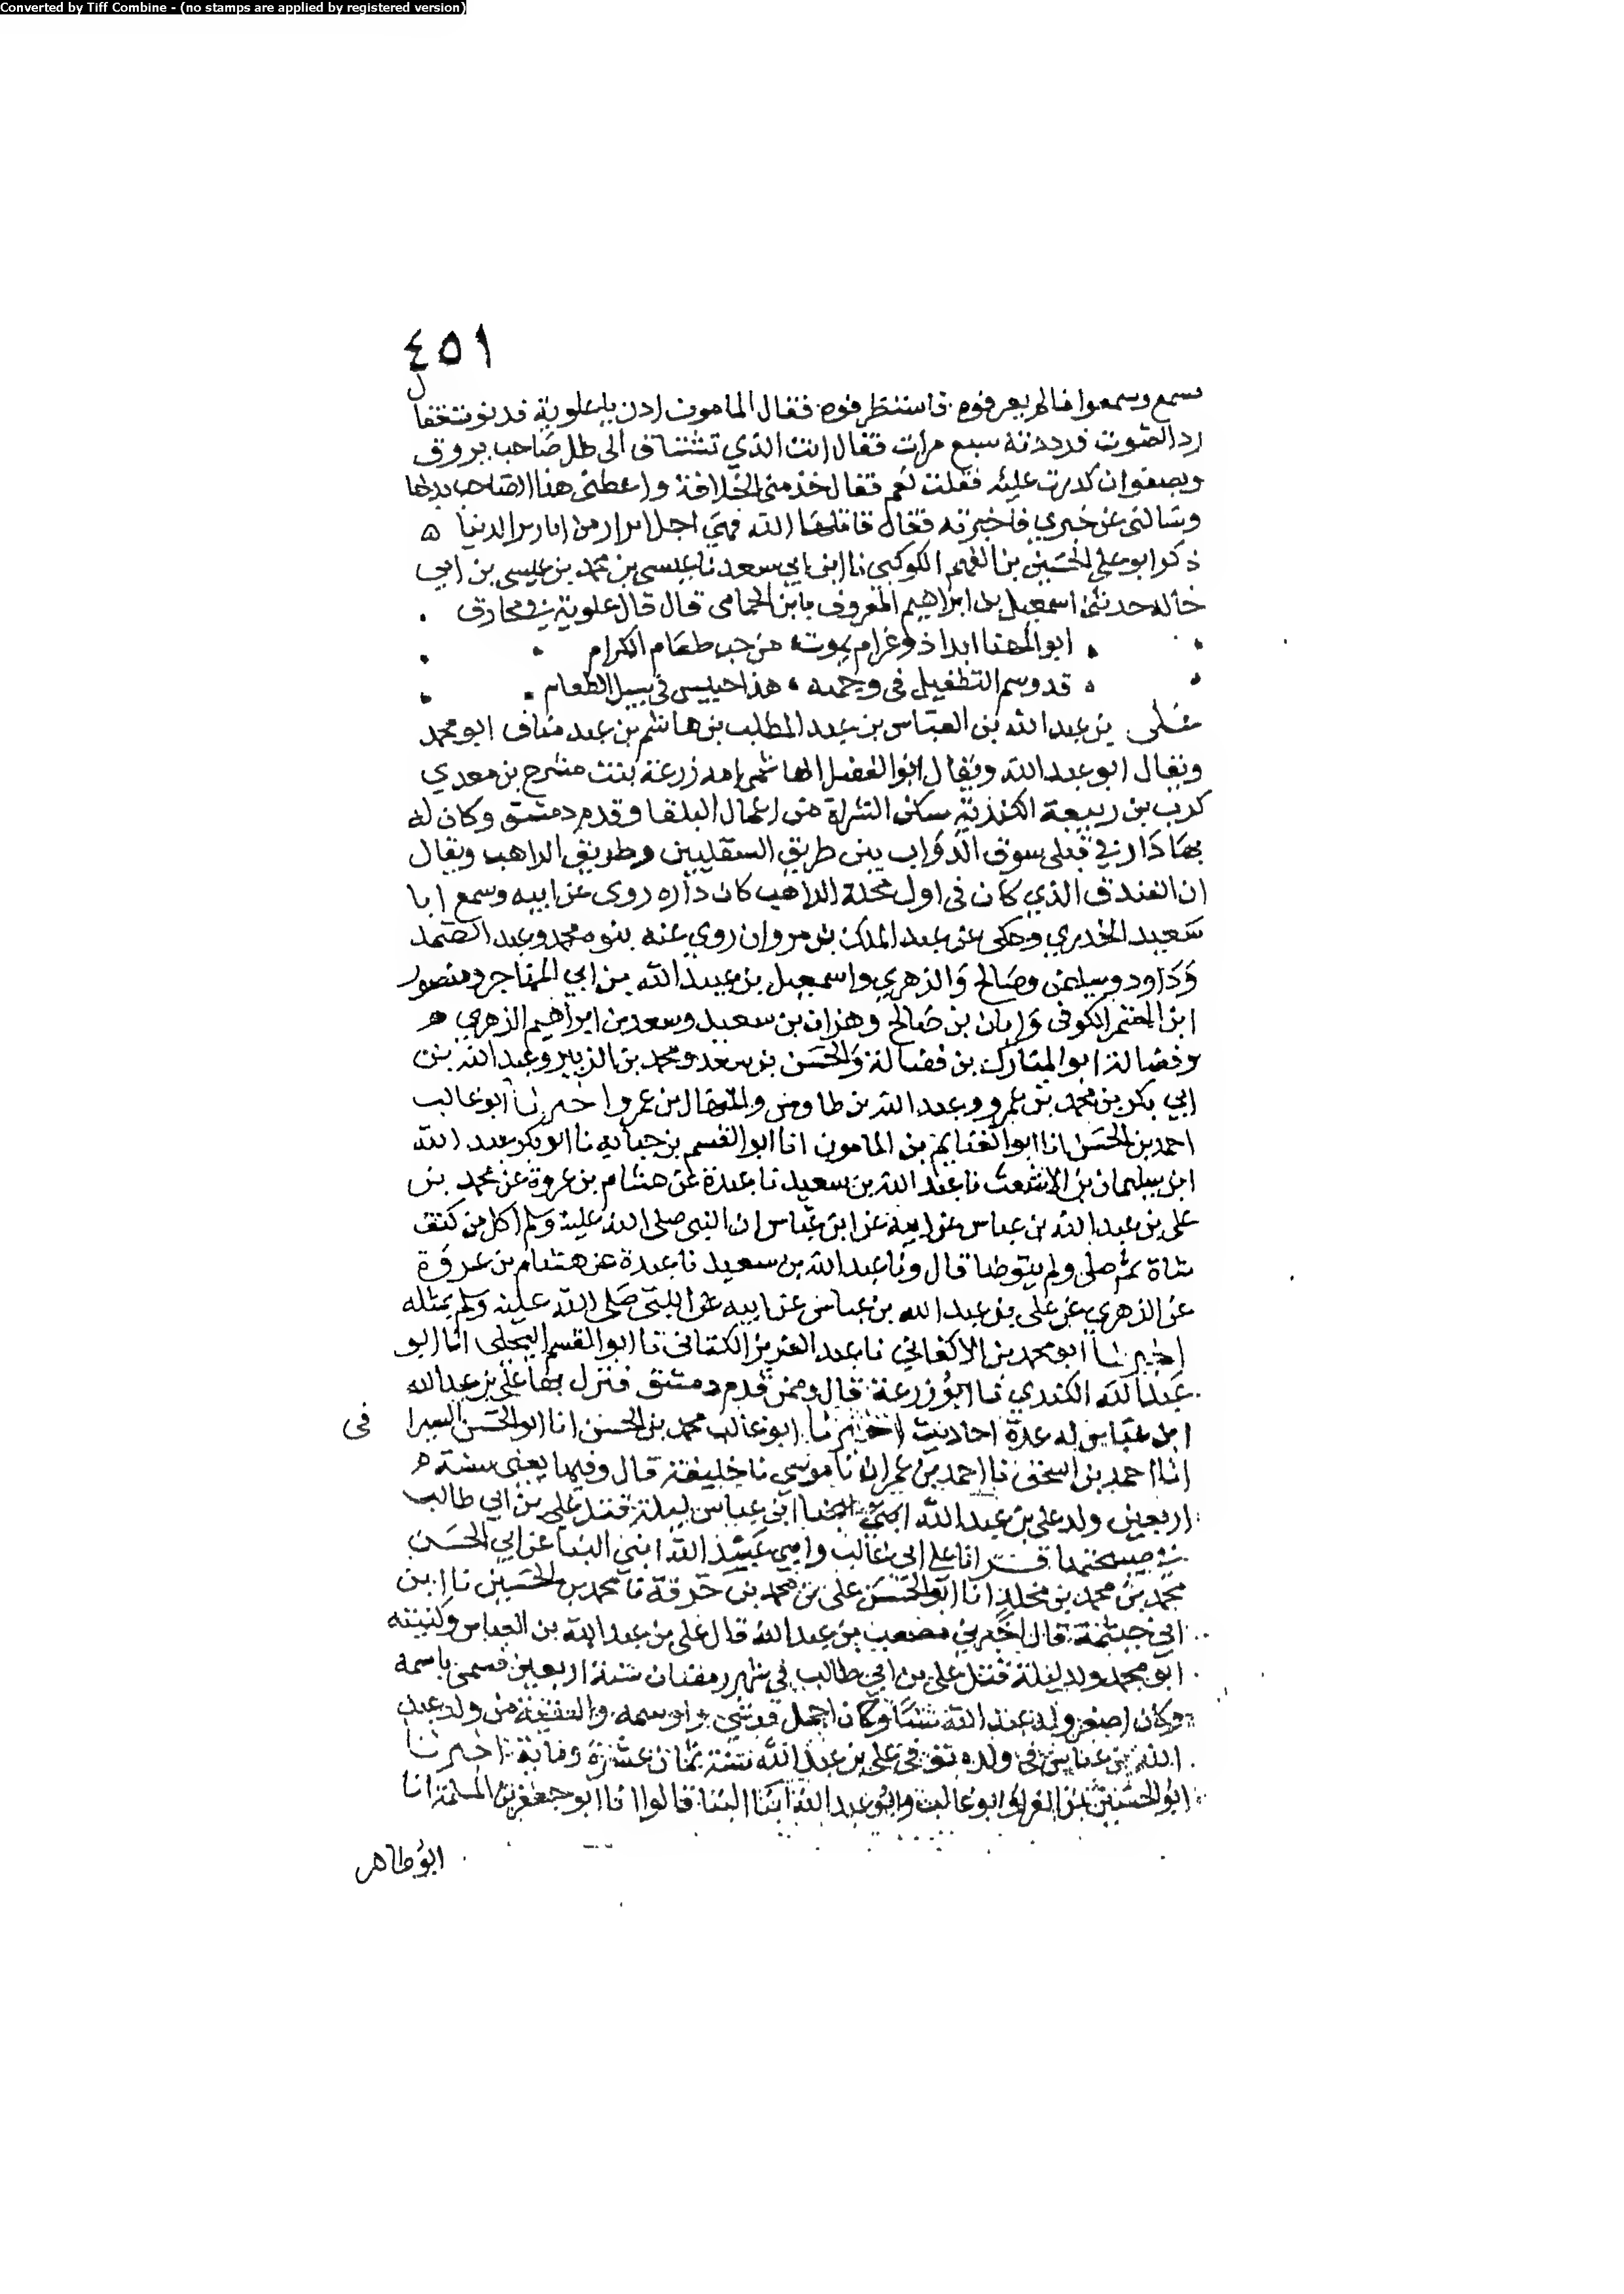 Converted by Tiff Combine - (no stamps are applied by registered version)
٤٥١
فسمع وسمعوا مالم يعرفوه فاستظرفوه فقال المامون ادن يا علوية فدنوت فقال
رد الصوت فرددته سبع مرات فقال انت الذي تشتاق الى ظل صاحب يروق
ويصفو ان كدرت عليه فقلت نعم فقال خذ مني الخلافة واعطني هذا الصاحب بدلها
وسالني عن خبري فاخبرته فقال قاتلها الله فهي اجل ابزار من ابازير الدنيا ه
ذكر ابو علي الحسين بن القسم الكوكبي نا ابن ابي سعد نا عيسى بن محمد بن عيسى بن ابي
خالد حدثني اسمعيل بن ابراهيم المعروف بابن الحمامى قال قال علوية في مخارق
ابو المهنا ابدا ذو غرام يموت من حب طعام الكرام
قد وسم التطفيل فى وجهه هذا حبيس في سبيل الطعام
على بن عبد الله بن العباس بن عبد المطلب بن هاشم بن عبد مناف ابو محمد
ويقال ابو عبد الله ويقال ابو الفضل الهاشمى امه زرعة بنت مشرح بن معدي
كرب بن ربيعة الكندية سكن الشراة من اعمال البلقا وقدم دمشق وكان له
بها دار في قبلى سوق الدواب بين طريق السقليين وطريق الراهب ويقال
ان الفندق الذي كان فى اول محلة الراهب كان داره روى عن ابيه وسمع ابا
سعيد الخدري وحكى عن عبد الملك بن مروان روي عنه بنوه محمد وعبد الصمد
وداود وسليمن وصالح والزهري واسمعيل بن عبيد الله بن ابي المهاجر ومنصور
ابن المعتمر الكوفى وابان بن صالح وهزان بن سعيد وسعد بن ابراهيم الزهري ه
وفضالة ابو المبارك بن فضالة والحسن بن سعد ومحمد بن الزبير وعبد الله بن
ابي بكر بن محمد بن عمرو وعبد الله بن طاوس والمنهال بن عمرو اخبرنا ابو غالب
احمد بن الحسن انا ابو الغنايم بن المامون انا ابو القسم بن حبابه نا ابو بكر عبد الله
ابن سليمان بن الاشعث نا عبد الله بن سعيد نا عبدة عن هشام بن عروة عن محمد بن
على بن عبد الله بن عباس عن ابيه عن ابن عباس ان النبي صلى الله عليه وسلم اكل من كتف
شاة ثم صلى ولم يتوضا قال ونا عبد الله بن سعيد نا عبدة عن هشام بن عروة
عن الزهري عن على بن عبد الله بن عباس عن ابيه عن النبي صلى الله عليه وسلم بمثله
اخبرنا ابو محمد بن الاكفاني نا عبد العزيز الكتانى نا ابو القسم البجلى انا ابو
عبد الله الكندي نا ابو زرعة قال وممن قدم دمشق فنزل بها على بن عبد الله
ابن عباس له عدة احاديث اخبرنا ابو غالب محمد بن الحسن انا ابو الحسن السيرا فى
انا احمد بن اسحق نا احمد بن عمران نا موسي نا خليفة قال وفيها يعنى سنة ه
اربعين ولد على بن عبد الله ابن عباس ليلة قتل على بن ابي طالب
في صبيحتها قرانا على ابي غالب وابي عبد الله ابني البنا عن ابي الحسن
محمد بن محمد بن مخلد انا ابو الحسن على بن محمد بن خزفة نا محمد بن الحسين نا ابن
ابي خيثمة قال اخبرني مصعب بن عبد الله قال على بن عبد الله بن العباس وكنيته
ابو محمد ولد ليلة قتل على بن ابي طالب فى شهر رمضان سنة اربعين فسمى باسمه
وكان اصغر ولد عبد الله سنا وكان اجمل قرشي واوسمه والبقية من ولد عبد
الله بن عباس فى ولده توفى على بن عبد الله سنة ثمان عشرة وماية اخبرنا
ابو الحسين بن الفرا وابو غالب وابو عبد الله ابنا البنا قالوا انا ابو جعفر بن المسلمة انا
ابو طاهر